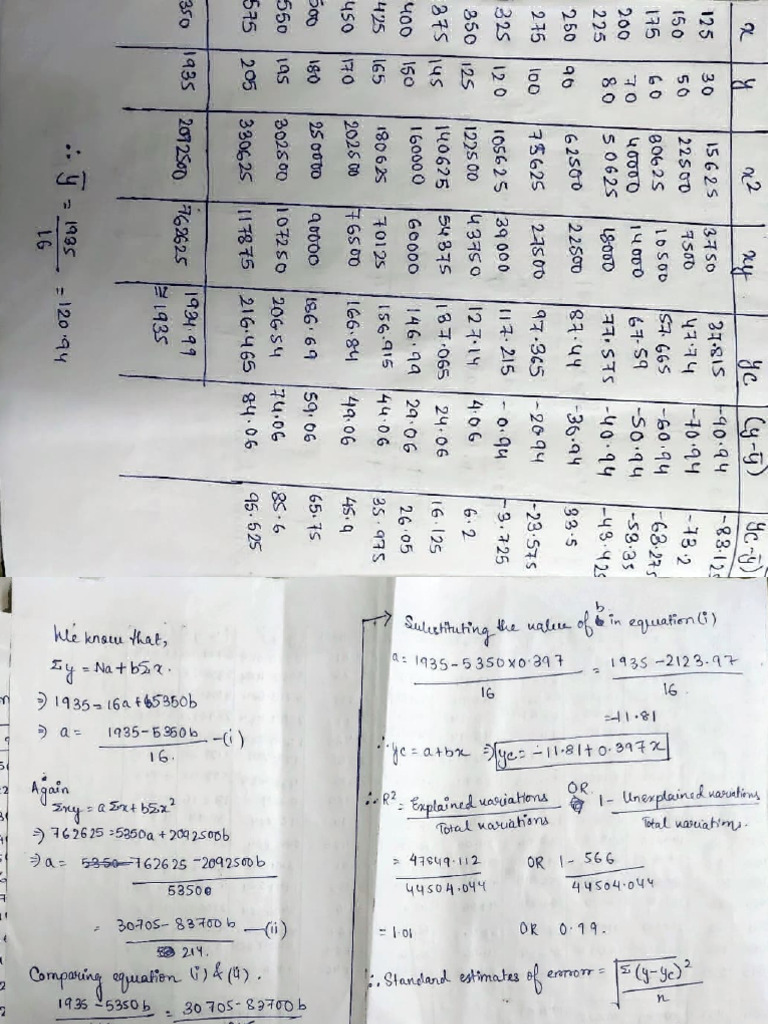 x y x² xy yc (y-ȳ) yc-ȳ)
125 30 15625 3750 37.815 -90.94 -83.12
150 50 22500 7500 47.74 -70.94 -73.2
175 60 30625 10500 57.665 -60.94 -63.275
200 70 40000 14000 67.59 -50.94 -53.35
225 80 50625 18000 77.575 -40.94 -43.425
250 90 62500 22500 87.44 -30.94 33.5
275 100 75625 27500 97.365 -20.94 -23.575
325 120 105625 39000 117.215 -0.94 -3.725
350 125 122500 43750 127.14 4.06 6.2
375 145 140625 54375 137.065 24.06 16.125
400 150 160000 60000 146.99 29.06 26.05
425 165 180625 70125 156.915 44.06 35.975
450 170 202500 76500 166.84 49.06 45.9
500 180 250000 90000 186.69 59.06 65.75
550 195 302500 107250 206.54 74.06 85.6
575 205 330625 117875 216.465 84.06 95.525
350 1935 2092500 762625 1934.99
≅1935
∴ ȳ = 1935/16 = 120.94
We know that,
Σy = Na + bΣx.
⇒ 1935 = 16a + 5350b
⇒ a = 1935-5350b/16. -(i)
Again
Σxy = aΣx + bΣx²
⇒ 762625 = 5350a + 2092500b
⇒ a = 762625-2092500b/5350
= 30705-83700b/214. -(ii)
Comparing equation (i) & (ii).
1935-5350b = 30705-83700b
Substituting the value of b in equation (i)
a = 1935-5350×0.397/16 = 1935-2123.97/16.
= -11.81
∴ yc = a+bx ⇒ yc = -11.81+0.397x
∴ R² = Explained variations/Total variations OR 1- Unexplained variations/Total variations.
= 47849.112/44504.044 OR 1- 566/44504.044
= 1.01 OR 0.99.
∴ Standard estimates of error = √Σ(y-yc)²/n